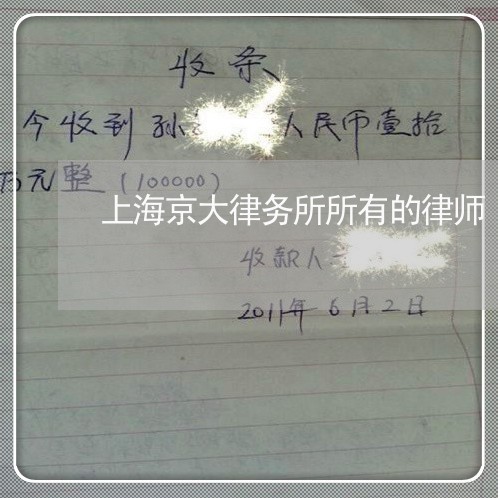 收条
今收到孙 人民币壹拾
万元整（100000）
上海京大律务所所有的律师
收款人
2011年6月2日